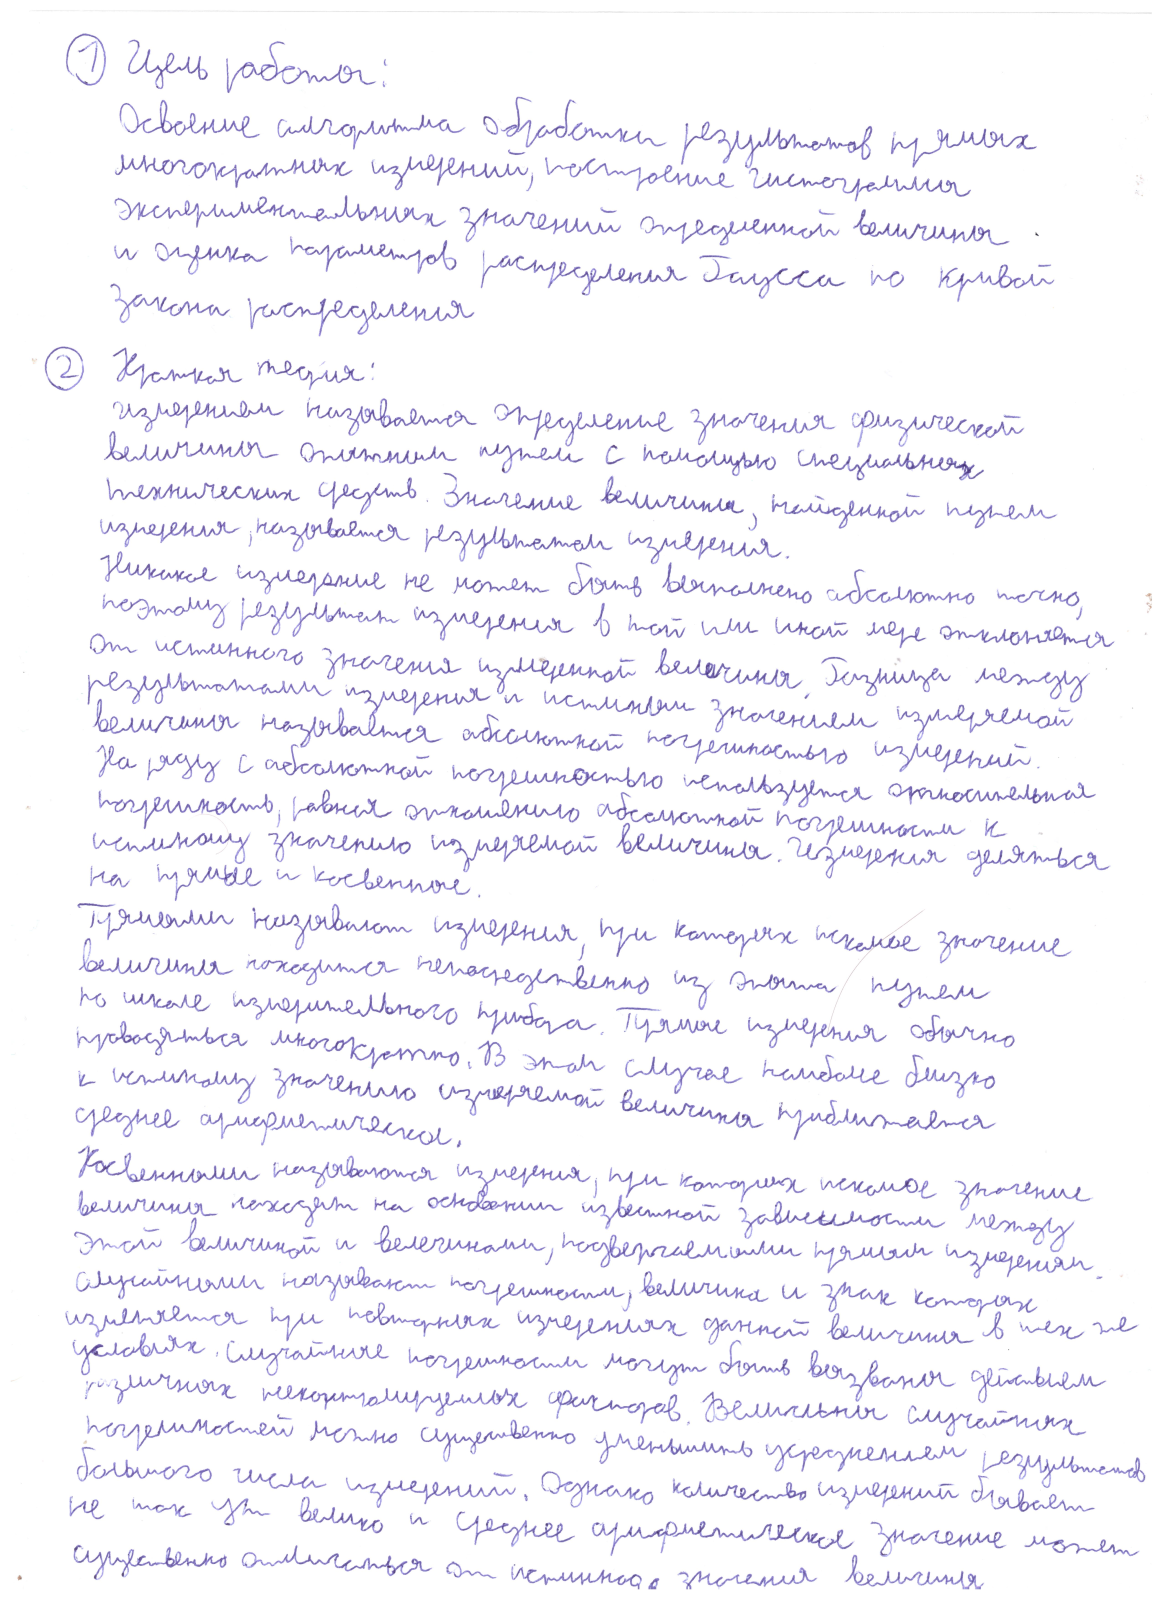 1 Цель работы:
Освоение алгоритма обработки результатов прямых
многократных измерений, построение гистограммы
экспериментальных значений определенной величины
и оценка параметров распределения Гаусса по кривой
закона распределения
2 Краткая теория:
Измерением называется определение значения физической
величины опытным путем с помощью специальных
технических средств. Значение величины, найденной путем
измерения, называется результатом измерения.
Никакое измерение не может быть выполнено абсолютно точно,
поэтому результат измерения в той или иной мере отклоняется
от истинного значения измеренной величины. Разница между
результатами измерения и истиным значением измеряемой
величины называется абсолютной погрешностью измерений.
На ряду с абсолютной погрешностью используется относительная
погрешность, равная отношению абсолютной погрешности к
истиному значению измеряемой величины. Измерения деляться
на прямые и косвенные.
Прямыми называют измерения, при которых искомое значение
величины находится непосредственно из опыта путем
по шкале измерительного прибора. Прямые измерения обычно
проводяться многократно. В этом случае наиболе близко
к истиному значению измеряемой величины приближается
среднее арифметическое.
Косвенными называются измерения, при которых искомое значение
величины находят на основании известной зависимости между
этой величиной и велечинами, подвергаемыми прямым измерениям.
Случайными называют погрешности, величина и знак которых
изменяется при повторных измерениях данной величины в тех же
условиях. Случайные погрешности могут быть вызваны действием
различных неконтролируемых факторов. Величины случайных
погрешностей можно существенно уменьшить усреднением результатов
большого числа измерений. Однако количество измерений бывает
не так уж велико и среднее арифметическое значение может
существенно отличаться от истинного значения величины